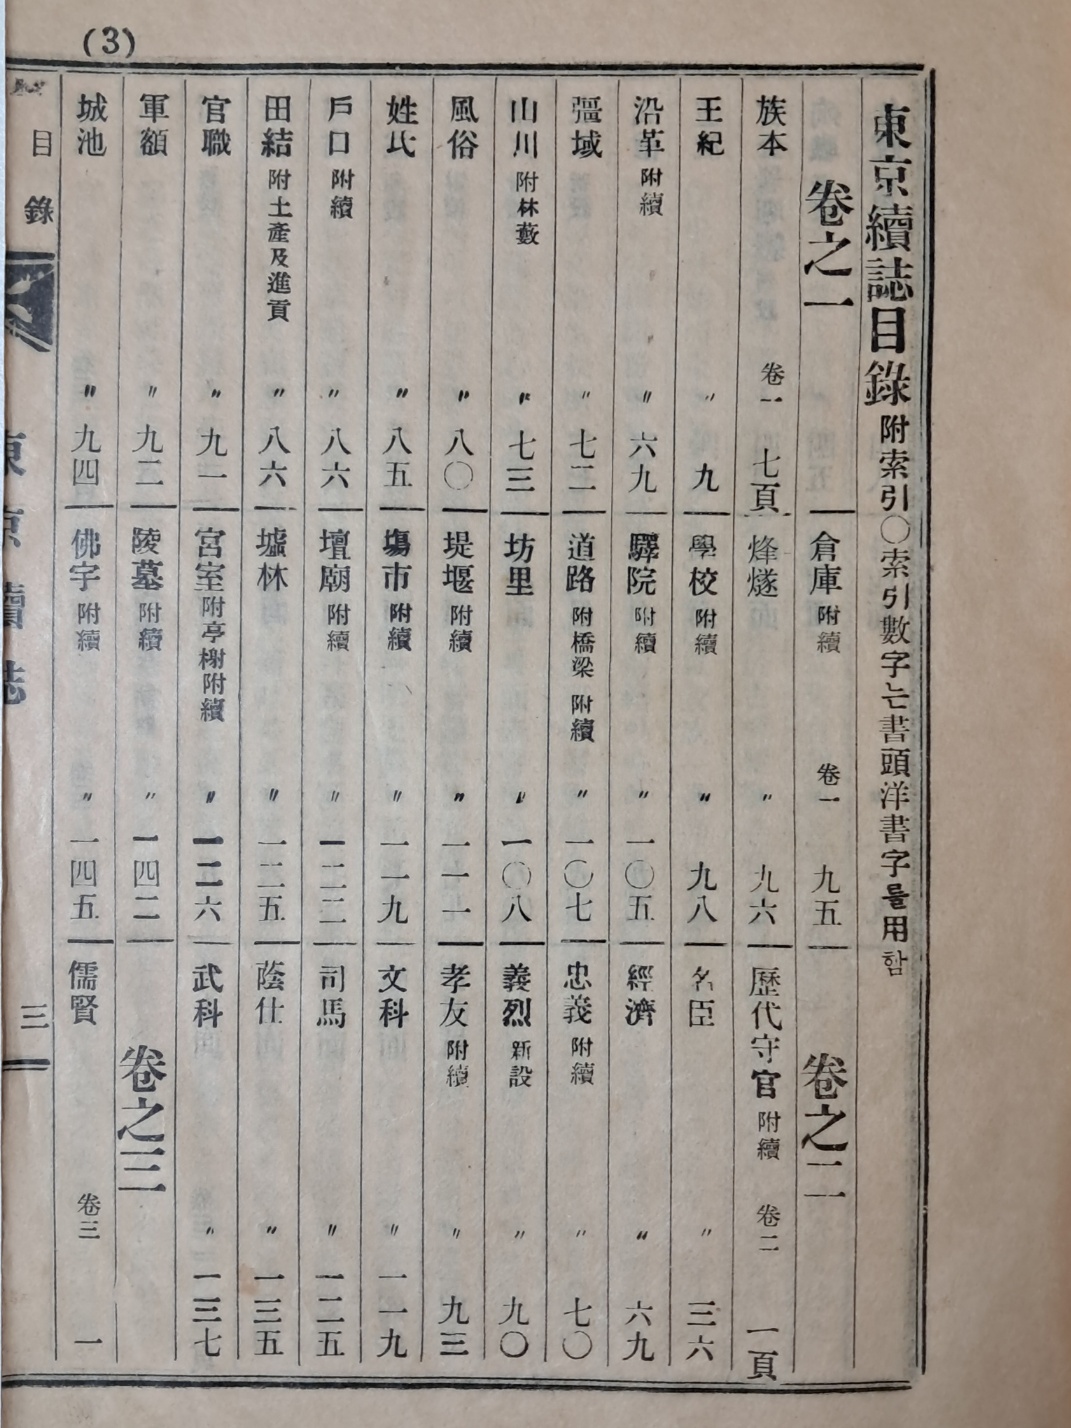 (3)
東京續誌目錄 附索引〇索引數字는書頭洋書字를用함
卷之一
族本 卷一 七頁
王紀 〃 九
沿革 附續 〃 六九
彊域 〃 七二
山川 附林藪 〃 七三
風俗 〃 八〇
姓氏 〃 八五
戶口 附續 〃 八六
田結 附土產及進貢 〃 八六
官職 〃 九一
軍額 〃 九二
城池 〃 九四
倉庫 附續 卷一 九五
烽燧 〃 九六
學校 附續 〃 九八
驛院 附續 〃 一〇五
道路 附橋梁 附續 〃 一〇七
坊里 〃 一〇八
堤堰 附續 〃 一一一
塲市 附續 〃 一一九
壇廟 附續 〃 一二二
墟林 〃 一二五
宮室 附亭榭附續 〃 一二六
陵墓 附續 〃 一四二
佛宇 附續 〃 一四五
卷之二
歷代守官 附續 卷二 一頁
名臣 〃 三六
經濟 〃 六九
忠義 附續 〃 七〇
義烈 新設 〃 九〇
孝友 附續 〃 九三
文科 〃 一一九
司馬 〃 一二五
蔭仕 〃 一三五
武科 〃 一三七
卷之三
儒賢 卷三 一
目錄
東京續誌
三